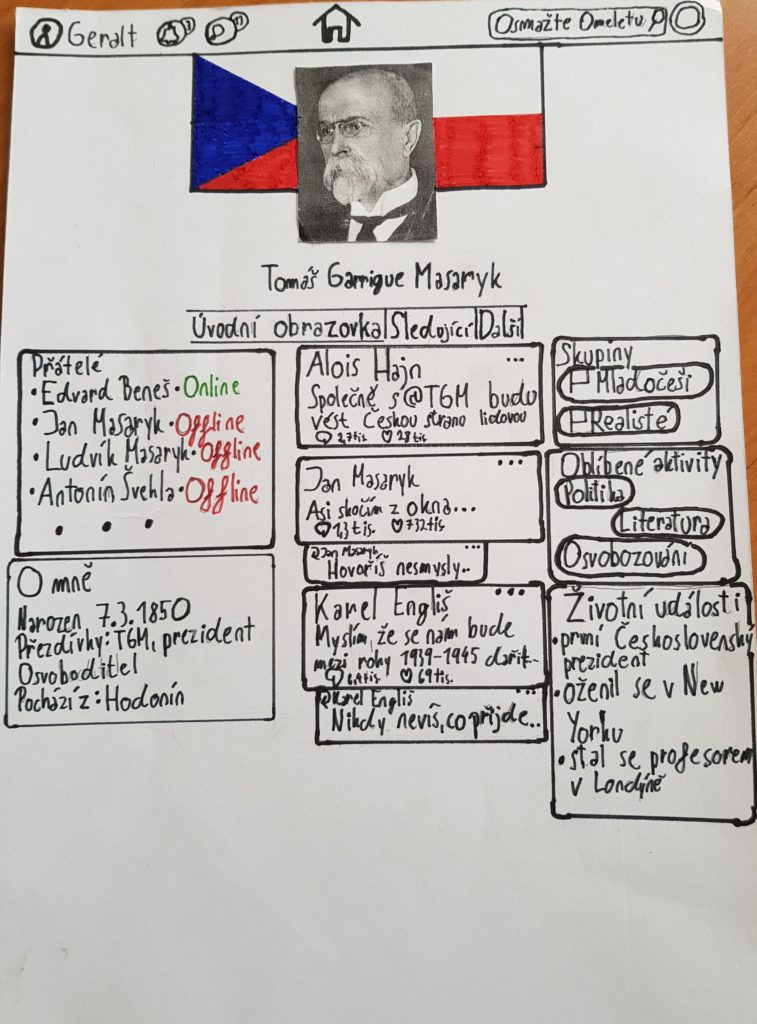 Geralt
3
11
Osmažte Omeletu
Tomáš Garrigue Masaryk
Úvodní obrazovka|Sledující|Další
Přátelé
•Edvard Beneš•Online
•Jan Masaryk•Offline
•Ludvík Masaryk•Offline
•Antonín Švehla•Offline
• • •
O mně
Narozen 7.3.1850
Přezdívky: TGM, prezident
Osvoboditel
Pochází z: Hodonín
Alois Hajn ...
Společně s @TGM budu
vést Českou stranu lidovou
2,7tis. 28tis.
Jan Masaryk ...
Asi skočím z okna...
1,3tis. 732tis.
@Jan Masaryk ...
Hovoříš nesmysly..
Karel Engliš ...
Myslím, že se nám bude
mezi roky 1939-1945 dařit...
8,9tis. 69tis.
@Karel Engliš ...
Nikdy nevíš, co přijde..
Skupiny
Mladočeši
Realisté
Oblíbené aktivity
Politika
Literatura
Osvobozování
Životní události
•první Československý
prezident
•oženil se v New
Yorku
•stal se profesorem
v Londýně